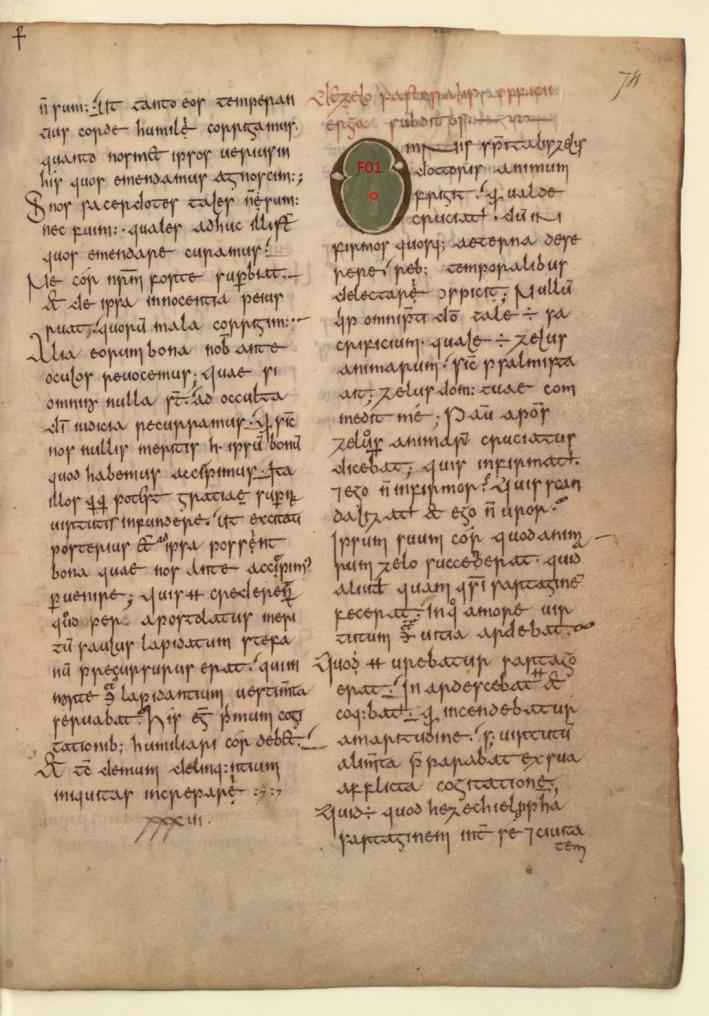 74
n̄ sum; Ut tanto eos temperan
tius corde humili corrigamus.
quanto nosmet ipsos uerius in
his quos emendamus agnoscim;
S nos sacerdotes tales n̄ sum;
nec fuim; quales adhuc illi st̄
quos emendare curamus.
Ne cór nr̄m forte supbiat.
& de ipsa innocentia peius
ruat, quorū mala corrigim;
Alia eorum bona nob ante
oculos reuocemus; quae si
omnino nulla st̄. ad occulta
dī iudicia recurramus. sic
nos nullis meritis h ipsū bonū
quod habemus accipimus. Ita
illos potest gratiae
uirtutis infundere. Ut excitati
posterius & ipsa possent
bona quae nos ante accipim;
puenire; quis crederet
per apostolatus meri
tū saulus lapidatum stefa
nū precursurus erat. quim
morte lapidantium uestimta
seruabat. His primum cogi
tationib; humiliari cór debet.
& tc̄ demum delinq:ntium
iniquitas increpare
xxxiii.
De zelo pastoralis officii
erga subditos
F01
O mnis sp̄italis zelus
doctoris animum
frigit. ualde
cruciat. dū in
firmos quosq; aeterna dese
rere. reb; temporalibus
delectare aspicit; Nullū
qp omnipti dō tale ÷ sa
crificium. quale ÷ zelus
animarum. sic psalmista
ait; zelus dom; tuae com
medit me; Pau apos
zelo animarū cruciatus
dicebat; quis infirmat.
⁊ ego n̄ infirmor. Quis scan
dalizat & ego n̄ uror.
Ipsum suum cór quod anim
rum zelo succederat. quid
aliud quam qsi sartagine
fecerat. Inq amore uir
tutum uitia ardebat.
Quod urebatur sartago
erat. In ardescebat &
coq;bat. incendebatur
amaritudine. s; uirtutū
alimta p̄parabat ex sua
afflicta cogitatione,
Quid÷ quod hezechiel ppha
sartaginem int̄ se ⁊ ciuita
tem